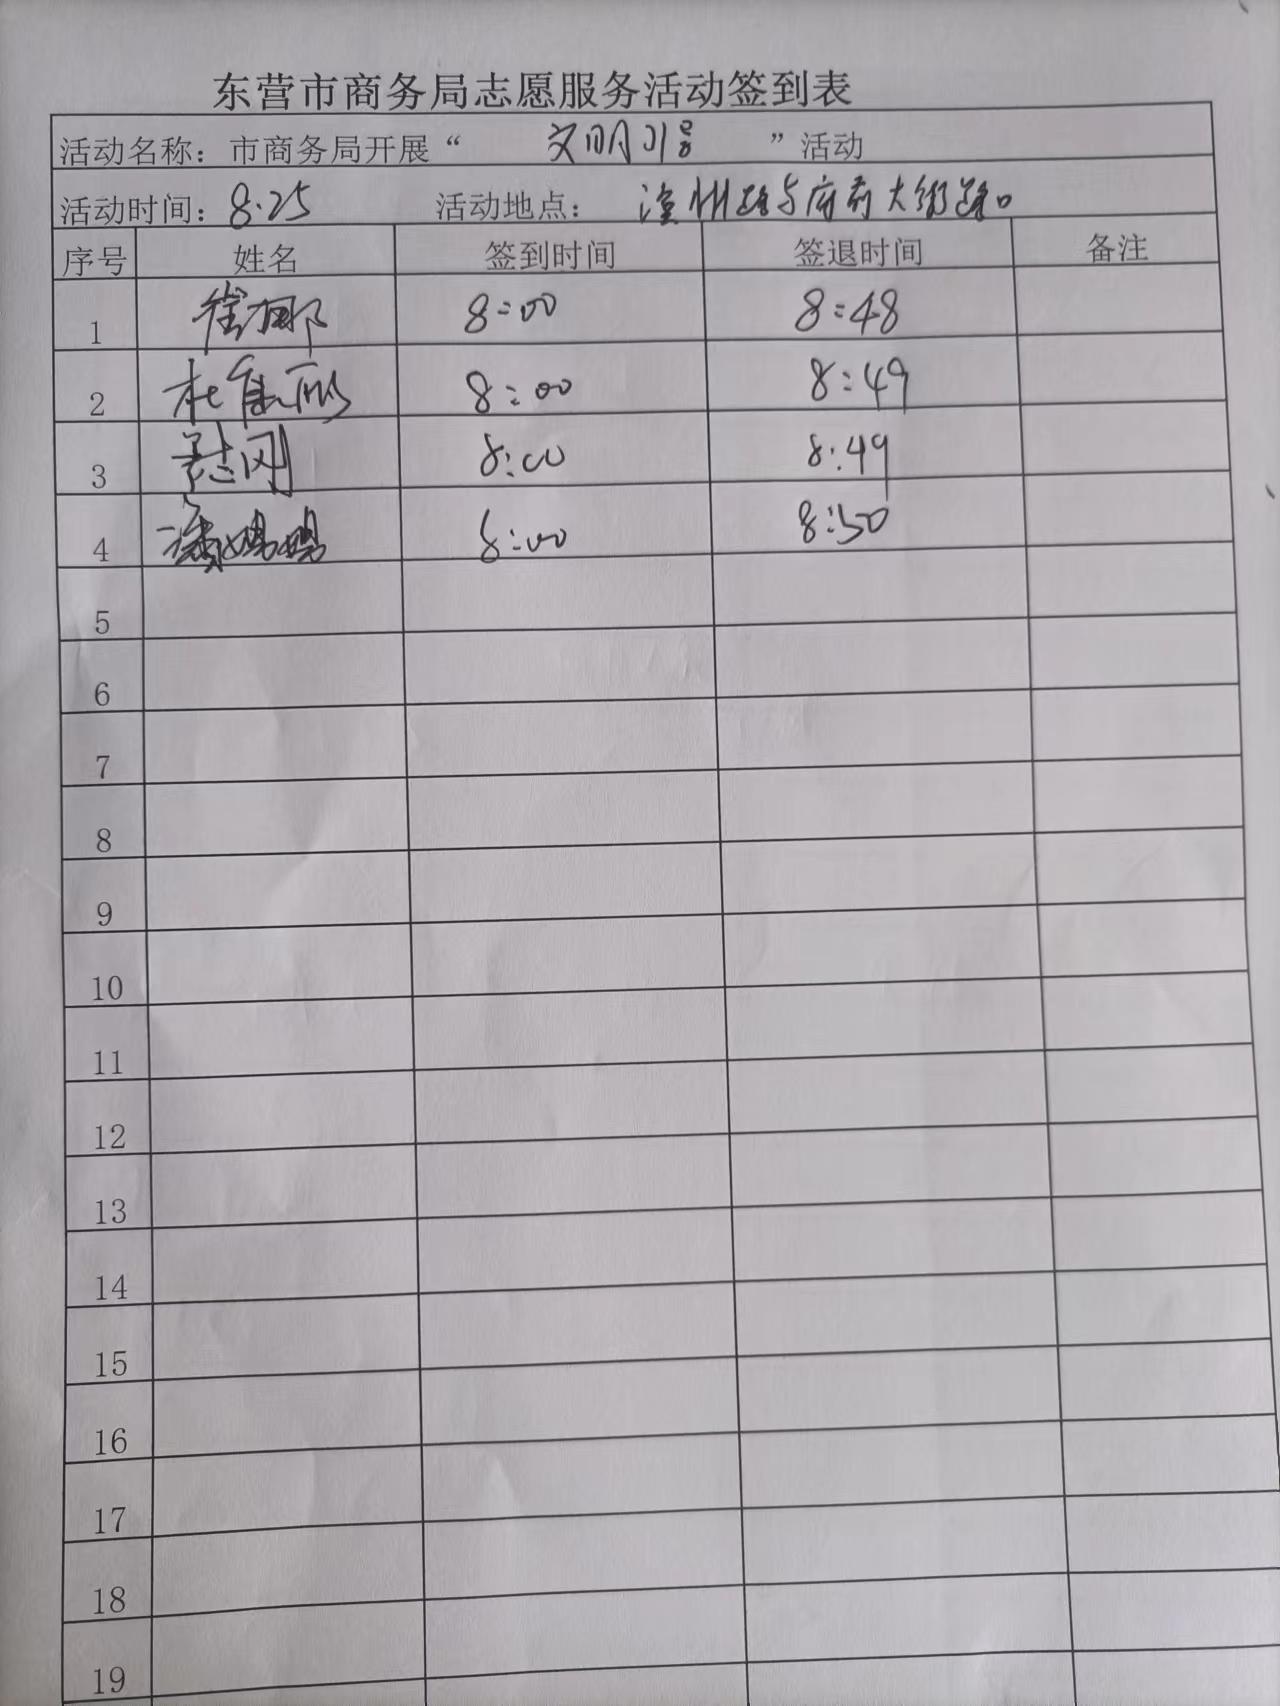 东营市商务局志愿服务活动签到表
活动名称：市商务局开展“ 文明引导 ”活动
活动时间：8.25 活动地点： 州路与府前大街路口
序号 姓名 签到时间 签退时间 备注
1 崔娜 8:00 8:48
2 杜集丽 8:00 8:49
3 8:00 8:49
4 潘娟娟 8:00 8:50
5
6
7
8
9
10
11
12
13
14
15
16
17
18
19